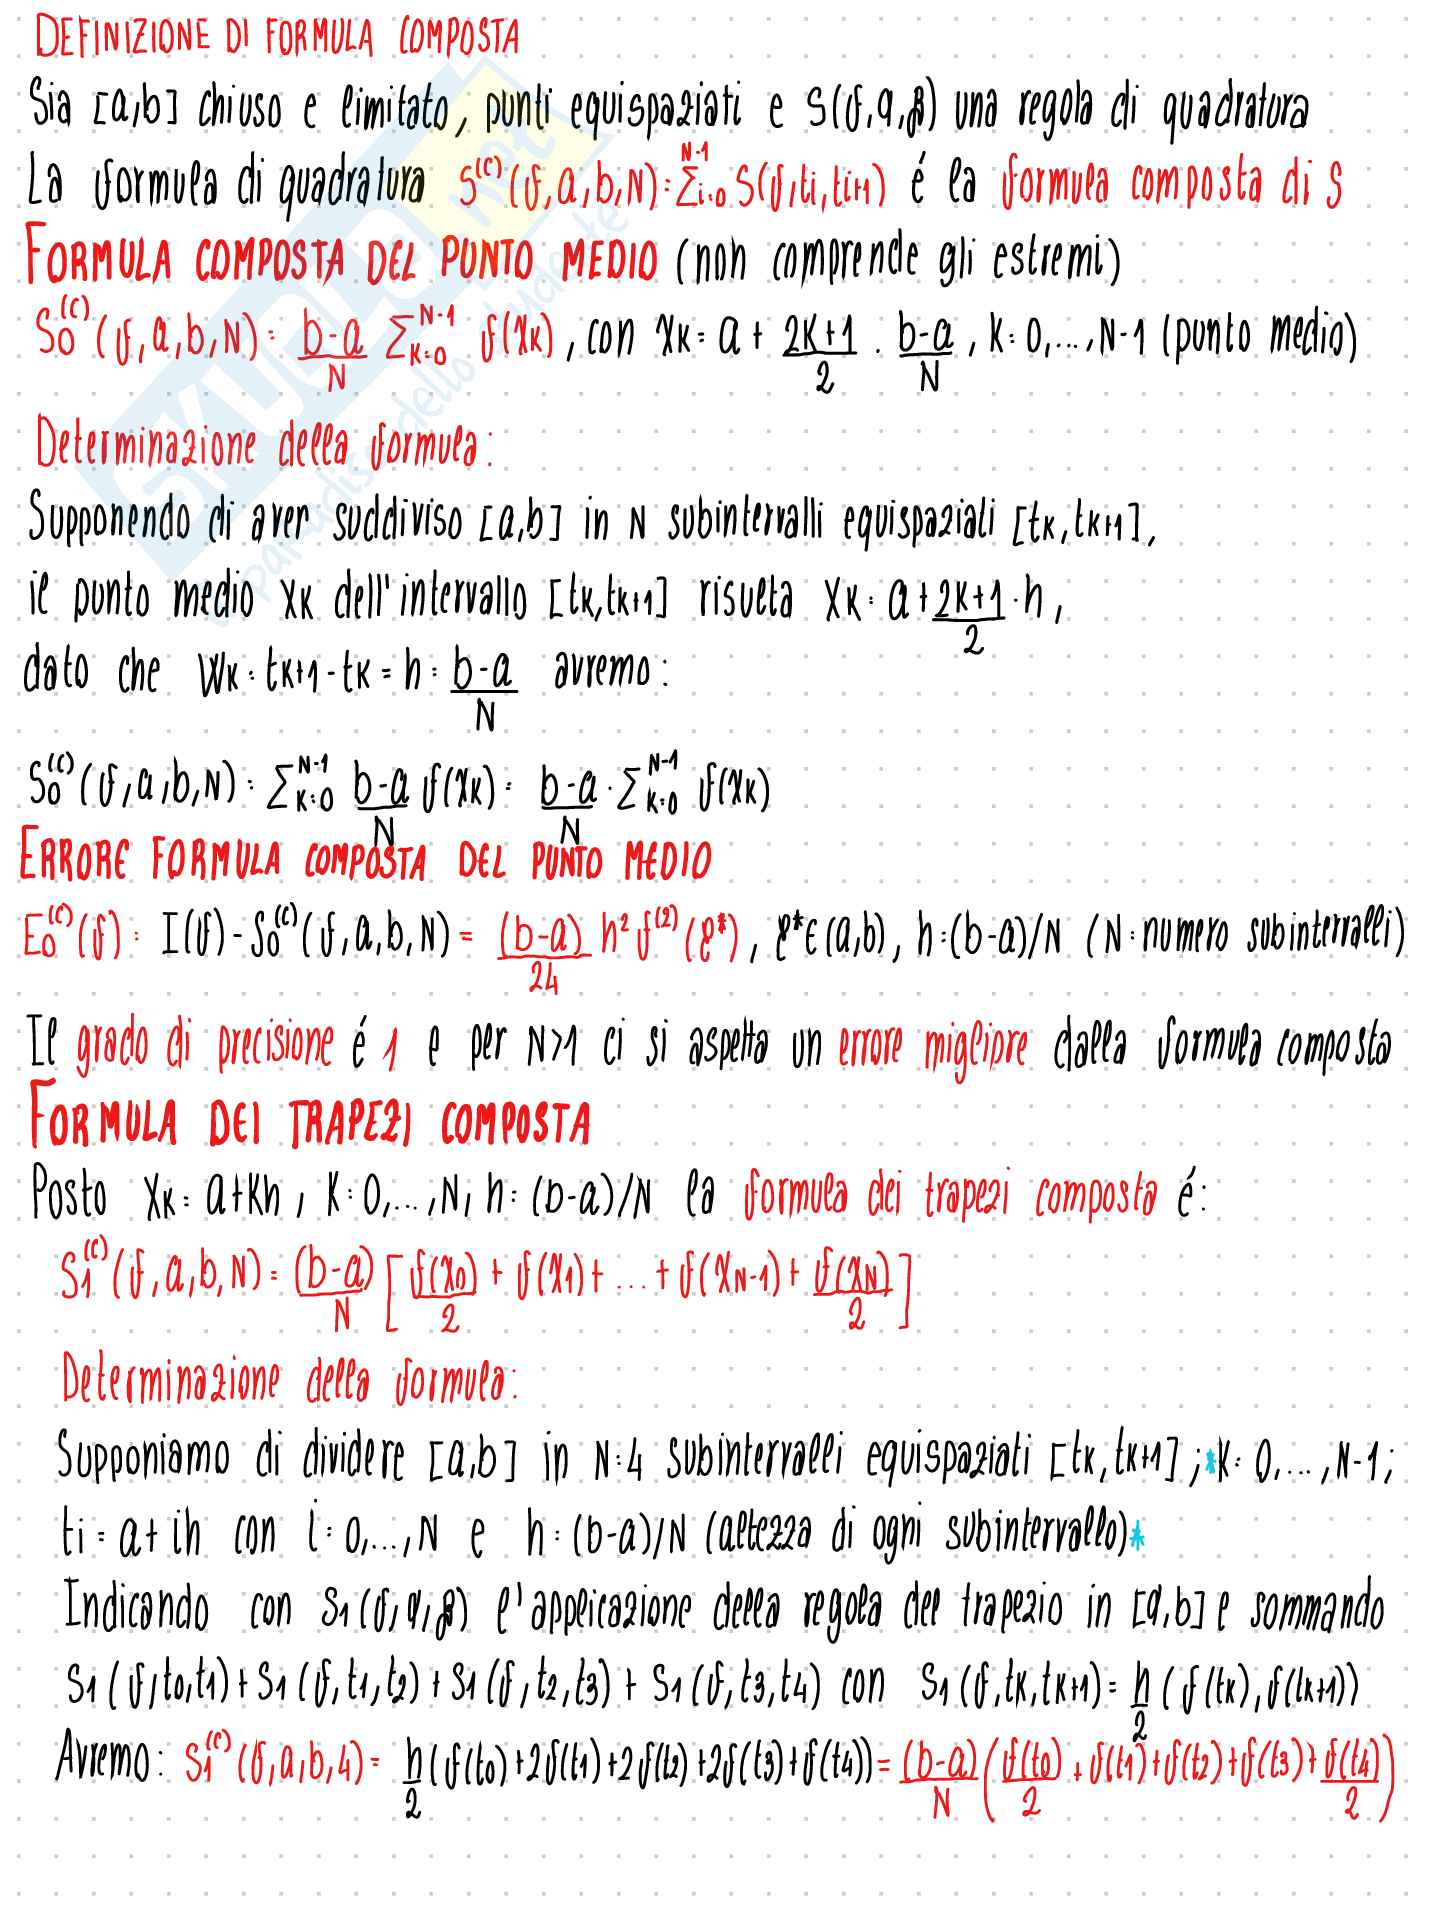 DEFINIZIONE DI FORMULA COMPOSTA
Sia [a,b] chiuso e limitato, punti equispaziati e S(f,α,β) una regola di quadratura
La formula di quadratura S^(c)(f,a,b,N)=∑_{i=0}^{N-1} S(f,ti,ti+1) é la formula composta di S
FORMULA COMPOSTA DEL PUNTO MEDIO (non comprende gli estremi)
S₀^(c)(f,a,b,N)= (b-a)/N ∑_{k=0}^{N-1} f(xk), con xk= a + (2k+1)/2 · (b-a)/N, k=0,...,N-1 (punto medio)
Determinazione della formula:
Supponendo di aver suddiviso [a,b] in N subintervalli equispaziati [tk,tk+1],
il punto medio xk dell'intervallo [tk,tk+1] risulta xk= a + (2k+1)/2 · h,
dato che wk= tk+1-tk = h = (b-a)/N avremo:
S₀^(c)(f,a,b,N)= ∑_{k=0}^{N-1} (b-a)/N f(xk)= (b-a)/N · ∑_{k=0}^{N-1} f(xk)
ERRORE FORMULA COMPOSTA DEL PUNTO MEDIO
E₀^(c)(f)= I(f)-S₀^(c)(f,a,b,N)= (b-a)/24 h² f^(2)(ξ*), ξ*∈(a,b), h=(b-a)/N (N=numero subintervalli)
Il grado di precisione é 1 e per N>1 ci si aspetta un errore miglipre dalla formula composta
FORMULA DEI TRAPEZI COMPOSTA
Posto xk= a+kh, k=0,...,N, h=(b-a)/N la formula dei trapezi composta é:
S₁^(c)(f,a,b,N)= (b-a)/N [f(x0)/2 + f(x1)+ ... + f(xN-1)+ f(xN)/2]
Determinazione della formula:
Supponiamo di dividere [a,b] in N=4 subintervalli equispaziati [tk,tk+1]; *k=0,...,N-1;
ti=a+ih con i=0,...,N e h=(b-a)/N (altezza di ogni subintervallo)*
Indicando con S1(f,α,β) l'applicazione della regola del trapezio in [α,b] e sommando
S1(f,t0,t1)+S1(f,t1,t2)+S1(f,t2,t3)+S1(f,t3,t4) con S1(f,tk,tk+1)= h/2 (f(tk),f(tk+1))
Avremo: S₁^(c)(f,a,b,4)= h/2 (f(t0)+2f(t1)+2f(t2)+2f(t3)+f(t4))= (b-a)/N (f(t0)/2 + f(t1)+f(t2)+f(t3)+ f(t4)/2)